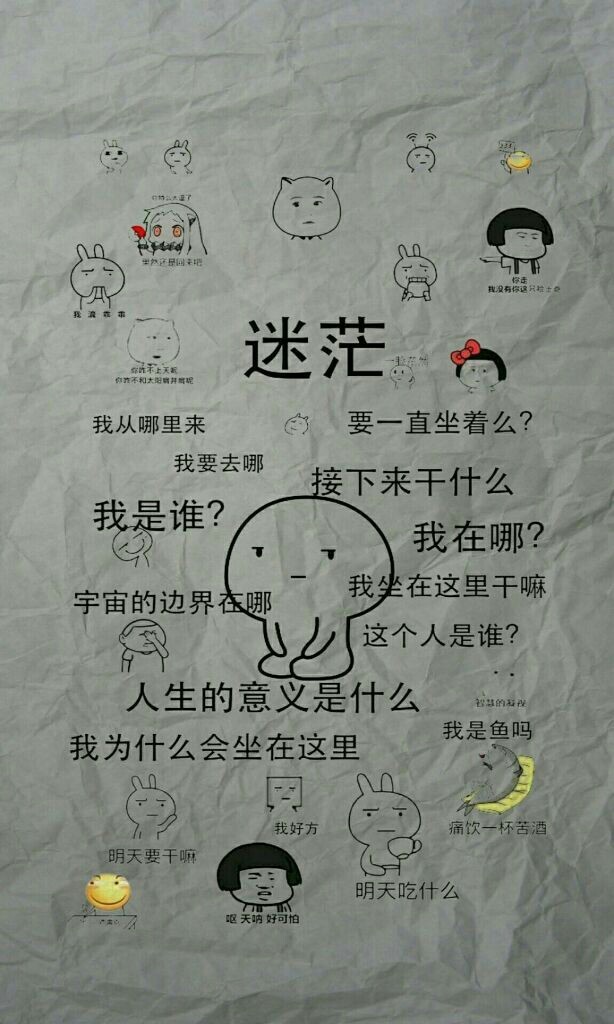 果然还是回来吧
我 滴 乖 乖
你走
迷茫
一脸茫然
你咋不上天呢
你咋不和太阳肩并肩呢
我从哪里来
要一直坐着么？
我要去哪
接下来干什么
我是谁？
我在哪？
我坐在这里干嘛
宇宙的边界在哪
这个人是谁？
人生的意义是什么
智慧的凝视
我是鱼吗
我为什么会坐在这里
我好方
痛饮一杯苦酒
明天要干嘛
明天吃什么
呕 天呐 好可怕